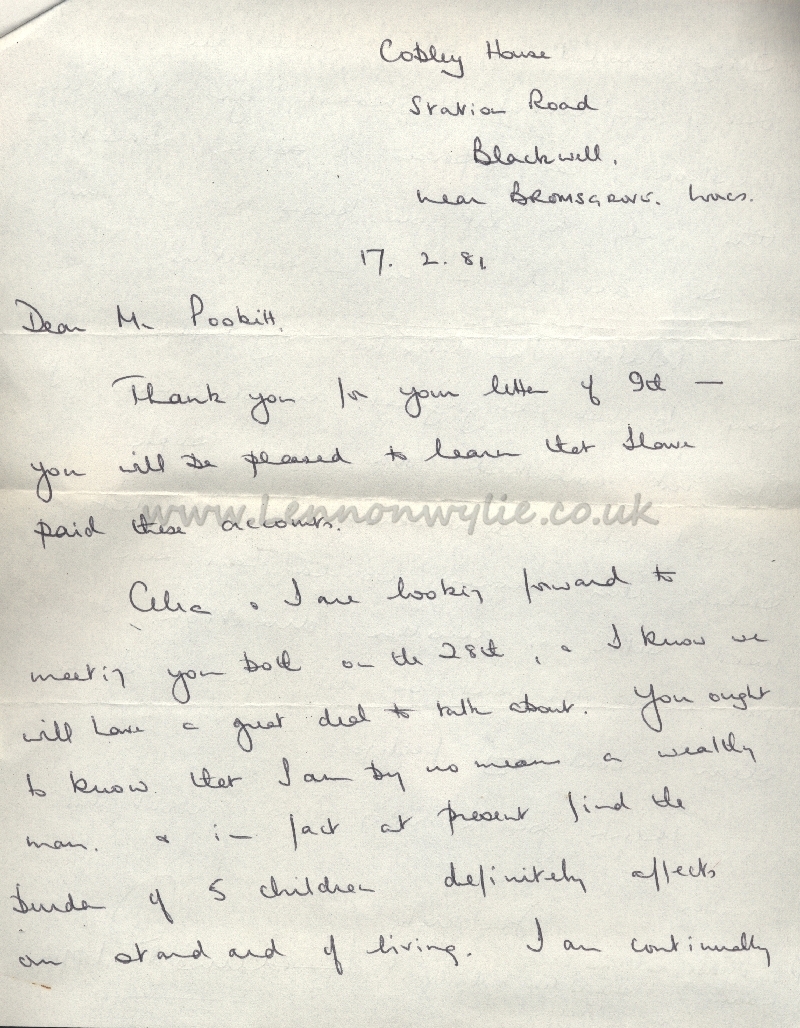 Cobley House
Station Road
Blackwell,
near BROMSGROVE. Worcs.
17. 2. 81.
Dear Mr Pookitt,
Thank you for your letter of 9th —
you will be pleased to learn that I have
paid these accounts.
www.Lennonwylie.co.uk
Celia & I are looking forward to
meeting you both on the 28th, & I know we
will have a great deal to talk about. You ought
to know that I am by no means a wealthy
man. & in fact at present find the
burden of 5 children definitely affects
our standard of living. I am continually